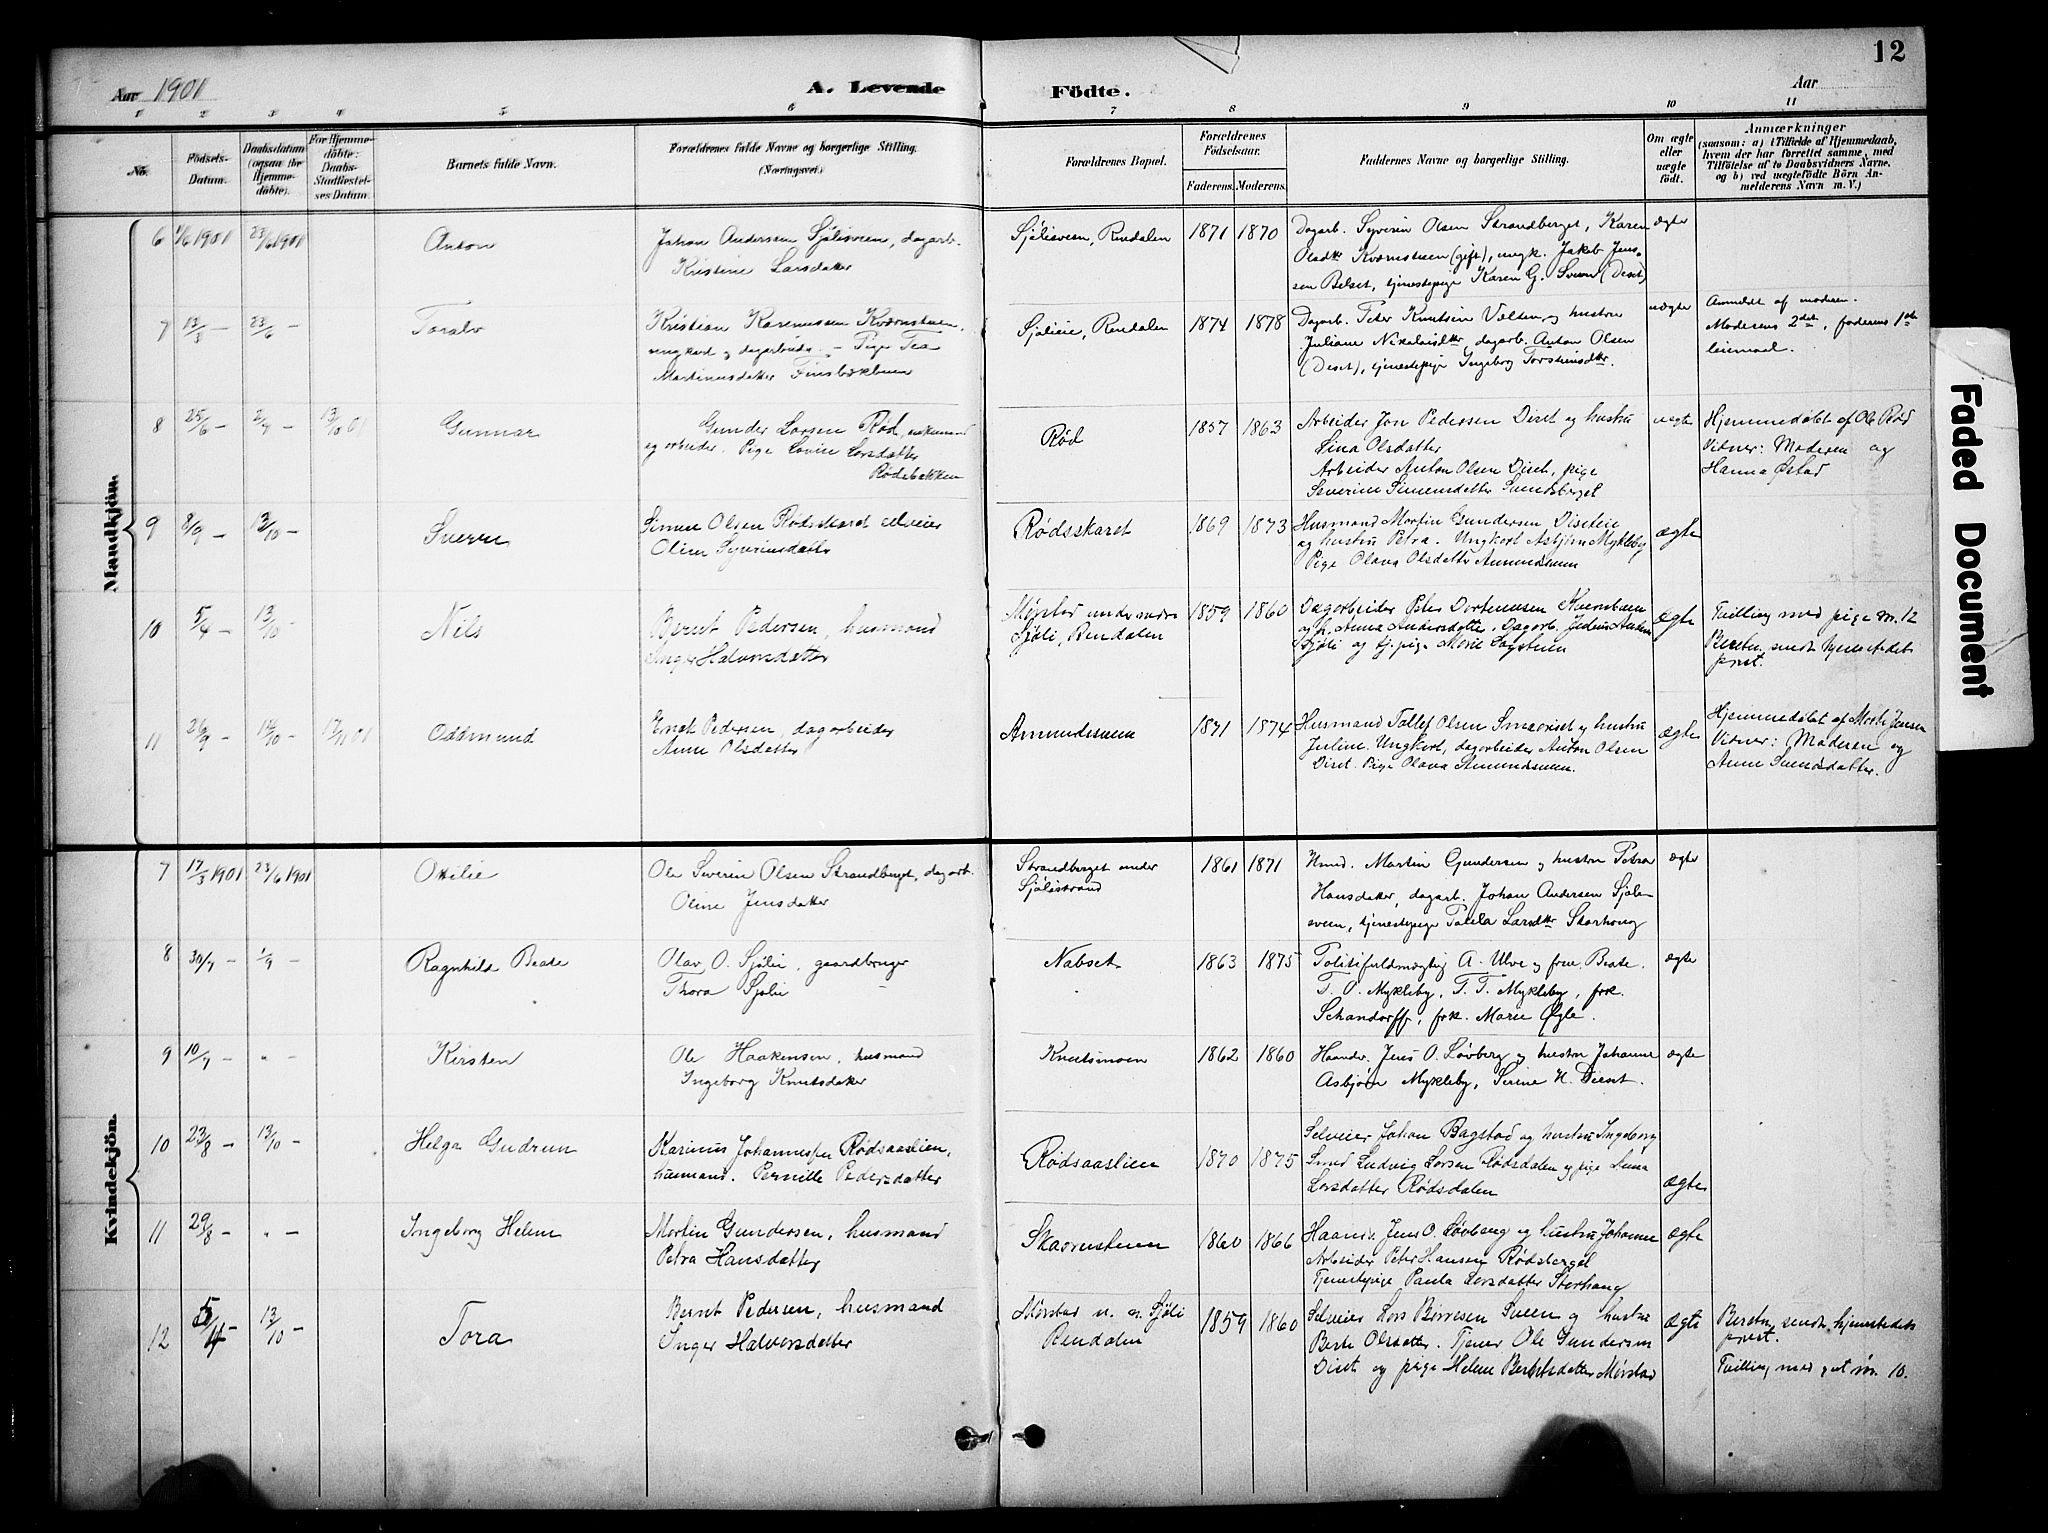 12
Aar 1901
A. Levende
Födte.
Aar
1 2 3 4 5 6 7 8 9 10 11
No.
Födsels-Datum.
Daabsdatum (ogsaa for Hjemme-döbte).
For Hjemme-döbte: Daabs-Stadfæstel-ses Datum.
Barnets fulde Navn.
Forældrenes fulde Navne og borgerlige Stilling.
(Næringsvei.)
Forældrenes Bopæl.
Forældrenes Födselsaar.
Faderens. Moderens.
Faddernes Navne og borgerlige Stilling.
Om ægte eller uægte födt.
Anmærkninger
(saasom: a) i Tilfælde af Hjemmedaab,
hvem der har forrettet samme, med
Tilföielse af to Daabsvidners Navne,
og b) ved uægtefödte Börn An-
melderens Navn m. V.)
Mandkjön.
6 1/6 1901 23/6 1901 Anton
Johan Andersen Sjølisveen, dagarb.
Kristine Larsdatter
Sjølisveen, Rendalen 1871 1870
Dagarb. Syverin Olsen Strandberget, Karen
Olsdtr Kværnstuen (gift), ungk. Jakob Jens-
sen Belset, tjenestepige Karen G. Sveen (Deset)
ægte
7 13/3 – 23/6 – Toralv
Kristian Karenussen Kværnstuen,
ungkarl og dagarbeider. – Pige Tea
Martinusdatter Finsbækbuen
Sjølieie, Rendalen 1874 1878
Dagarb. Peter Knutsen Vælten og hustru
Juliane Nikolaisdtr, dagarb. Anton Olsen
(Deset), tjenestepige Ingeborg Torsteinsdtr.
uægte
Anmeldt af moderen.
Moderens 2det, faderens 1ste
leiermaal.
8 25/6 – 2/7 – 13/10 01 Gunnar
Gunder Larsen Rød, enkemand
og arbeider. Pige Lovise Larsdatter
Rødsbakken
Rød 1857 1863
Arbeider Jon Pedersen Diset og hustru
Lina Olsdatter
Arbeider Anton Olsen Diset, pige
Severine Simensdatter Sundsberget
uægte
Hjemmedøbt af Ole Rød
Vidner: Moderen og
Hanna Østad
9 8/9 – 13/10 – Sverre
Simen Olsen Rødsskaret selveier
Oline Syverinsdatter
Rødsskaret 1869 1873
Husmand Martin Gundersen, Diseteie
og hustru Petra. Ungkarl Asbjørn Mykleby
Pige Olava Olsdatter Amundsveen
ægte
10 5/4 – 13/10 – Nils
Bernt Pedersen, husmand
Inger Halvorsdatter
Mørstad under nedre
Sjøli, Rendalen 1859 1860
Dagarbeider Peter
og h. Anna Andersdatter. Dagarb.
Sjøli og tj.pige Marie
ægte
Tvilling med pige nr. 12
Beretn. sendt hjemstedets
prest.
11 26/9 – 14/10 – 17/11 01 Oddmund
Ernst Pedersen, dagarbeider
Anne Olsdatter
Amundsveen 1871 1874
Husmand Tollef Olsen Smaariset og hustru
Juline. Ungkarl, dagarbeider Anton Olsen
Diset. Pige Olava Amundsveen.
ægte
Hjemmedøbt af Marte Jensen
Vidner: Moderen og
Anne Svendsdatter.
Kvindekjön.
7 17/3 1901 23/6 1901 Otilie
Ole Severin Olsen Strandberget, dagarb.
Oline Jensdatter
Strandberget under
Sjølistrand 1861 1871
Hmd. Martin Gundersen og hustru Petra
Hansdatter, dagarb. Johan Andersen Sjølis-
sveen, tjenestepige Paula Larsdtr Storhaug
ægte
8 30/7 – 1/9 – Ragnhild Beate
Olav O. Sjølie, gaardbruger
Thora Sjølie
Nabset 1863 1875
Politifuldmægtig A. Ulve og frue Beate.
T. O. Mykleby, T. T. Mykleby, frk.
Schandorff, frk. Marie Øgle.
ægte
9 10/7 – " – Kirsten
Ole Haakensen, husmand
Ingeborg Knutsdatter
Knutsmoen 1862 1860
Haandv. Jens O. Løvberg og hustru Johanne
Asbjørn Mykleby, Serine H. Diset.
ægte
10 23/8 – 13/10 – Helga Gudrun
Karinus Johannessen Rødsaaslien,
husmand. Pernille Pedersdatter
Rødsaaslien 1870 1875
Selveier Johan Bagstad og hustru Ingeborg
Smed Ludvig Larsen Rødsdalen og pige Anna
Larsdatter Rødsdalen
ægte
11 29/8 – " – Ingeborg Helene
Martin Gundersen, husmand
Petra Hansdatter
Skaarnstuen 1860 1866
Haandv. Jens O. Løvberg og hustru Johanne
Arbeider Peter Hansen Rødsberget
Tjenestepige Paula Larsdatter Storhaug
ægte
12 5/4 – 13/10 – Tora
Bernt Pedersen, husmand
Inger Halvorsdatter
Mørstad u. n. Sjøli
Rendalen 1859 1860
Selveier Lars Børresen Sveen og hustru
Berte Olsdatter. Tjener Ole Gundersen
Diset og pige Helene Berntsdatter Mørstad
ægte
Beretn. sendt hjemstedets
prest.
Tvilling med gut nr. 10.
Faded Document